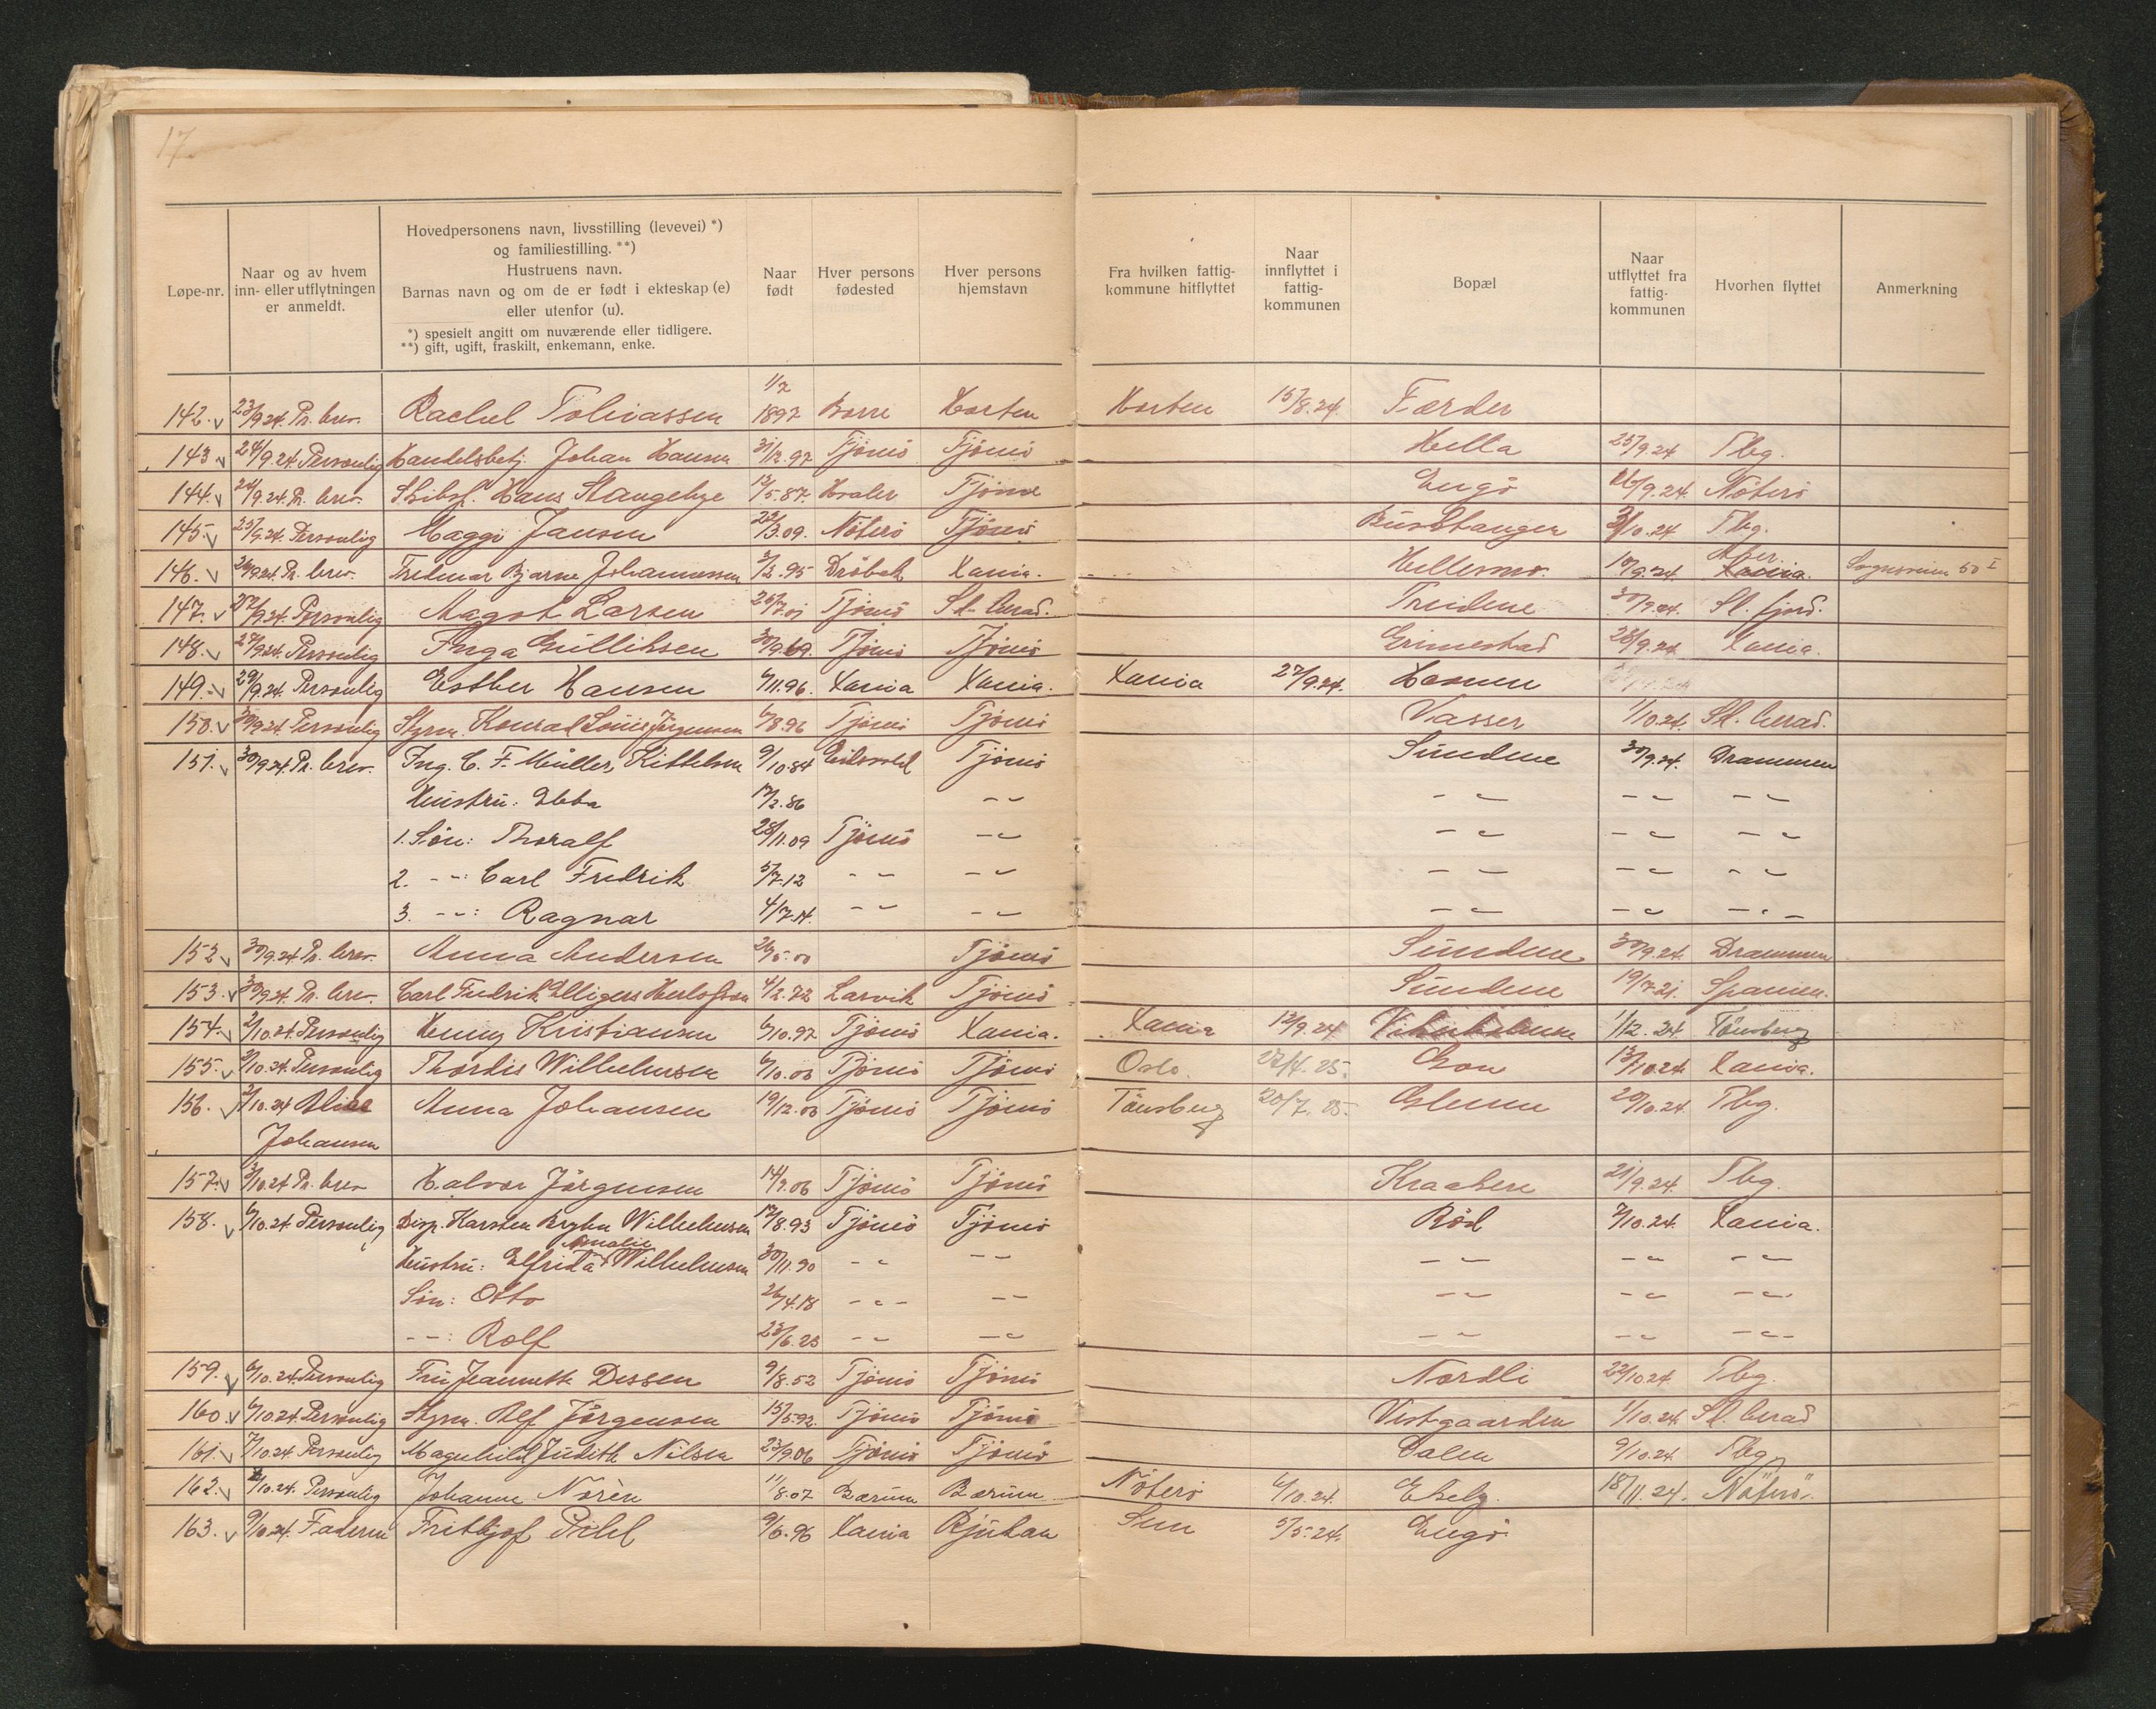 17.
Løpe-nr.
Naar og av hvem
inn- eller utflytningen
er anmeldt.
Hovedpersonens navn, livsstilling (levevei) *)
og familiestilling. **)
Hustruens navn.
Barnas navn og om de er født i ekteskap (e)
eller utenfor (u).
*) spesielt angitt om nuværende eller tidligere.
**) gift, ugift, fraskilt, enkemann, enke.
Naar
født
Hver persons
fødested
Hver persons
hjemstavn
Fra hvilken fattig-
kommune hitflyttet
Naar
innflyttet i
fattig-
kommunen
Bopæl
Naar
utflyttet fra
fattig-
kommunen
Hvorhen flyttet
Anmerkning
142. 23/9.24. Pr. brev. Rachel Tobiassen 1/2 1897 Borre Horten Horten 15/8.24. Færder
143 24/9.24. Personlig Handelsbetj. Johan Hansen 31/12.97 Tjömö Tjömö Hella 25/9.24 Tbg.
144. 24/9.24. Pr. brev. Skibsf. Hans Stangebye 12/5.87. Hvaler Tjöme Engö 26/9.24. Nöterö
145. 25/9.24. Personlig Maggi Jansen 22/3.09. Nöterö Tjömö Busktangen 2/10.24 Tbg.
146. 26/9.24. Pr. brev. Fredmar Bjarne Johannessen 3/12.95 Dröbak Xania. Hellesmo. 10/9.24 Aker. Xania. Sognsveien 50 I
147. 27/9.24. Personlig Magot Larsen 26/7.01 Tjömö Sl. herad. Treidene 30/9.24. Sl. fjord.
148. 27/9.24. Personlig Inga Gulliksen 30/9.69. Tjömö Tjömö Grimestad 28/9.24 Xania.
149. 29/9.24. Personlig Esther Hansen 6/11.96. Xania Xania. Xania 27/9.24. Havnen
150. 30/9.24 Personlig Styrm. Konrad Louis Jörgensen 6/8.96 Tjömö Tjömö Vasser 1/10.24. Sl. herad.
151. 30/9.24. Pr. brev. Ing. C. F. Müller, Kittelsen 9/10.84 Eidsvold Tjömö Sundene 30/9.24. Drammen
Hustru: Ebba 17/2.86 -"- -"- -"- -"-
1. Sön: Thoralf 28/11.09 Tjömö -"- -"- -"- -"-
2. -"-: Carl Fredrik 5/7.12 -"- -"- -"- -"- -"-
3. -"-: Ragnar 4/7.14. -"- -"- -"- -"- -"-
152. 30/9.24. Pr. brev. Anna Andersen 26/5.00 Tjömö Sundene 30/9.24. Drammen
153. 30/9.24. Pr. brev. Carl Fredrik Elligers Herlofson 4/2.72 Larvik Tjömö Sundene 19/7.21. Spanien.
154. 2/10.24. Personlig Henny Kristiansen 6/10.97 Tjömö Xania. Xania 12/9.24 1/12.24. Tönsberg
155. 2/10.24. Personlig Thordis Wilhelmsen 6/10.00 Tjömö Tjömö Oslo. 27/4.25. Gon 13/10.24. Xania.
156. 3/10.24 Johansen Anna Johansen 19/12.00 Tjömö Tjömö Tönsberg 20/7.25. Glenne 20/10.24. Tbg.
157. 3/10.24 Pr. brev Halvor Jörgensen 14/9.06 Tjömö Tjömö Kraakere 21/9.24. Tbg.
158. 6/10.24. Personlig Disp. Karsten Bryhn Wilhelmsen 17/8.93 Tjömö Tjömö Röd 7/10.24. Xania.
Hustru: Elfrida Amalie Wilhelmsen 30/11.90 -"- -"- -"- -"- -"-
Sön: Otto 26/4.18 -"- -"- -"- -"- -"-
-"-: Rolf 23/6.23 -"- -"- -"- -"- -"-
159. 6/10.24. Personlig Fru Jeannette Dessen 9/8.52 Tjömö Tjömö Nordli 22/10.24. Tbg.
160. 6/10.24. Personlig Styrm. Alf Jörgensen 15/5.92. Tjömö Tjömö Vestgaarden 1/10.24. Sl. herad
161. 7/10.24. Personlig Magnhild Judith Nilsen 23/9.06 Tjömö Tjömö Dalen 9/10.24. Tbg
162. 8/10.24. Personlig Johanne Norèn 11/8.07 Bærum Bærum Nöterö 6/10.24. Ekely. 18/11.24. Nöterö.
163. 9/10.24. Faderen Frithjof Pihl 9/6.96 Xania Rjukan Sem 5/5.24. Engö.